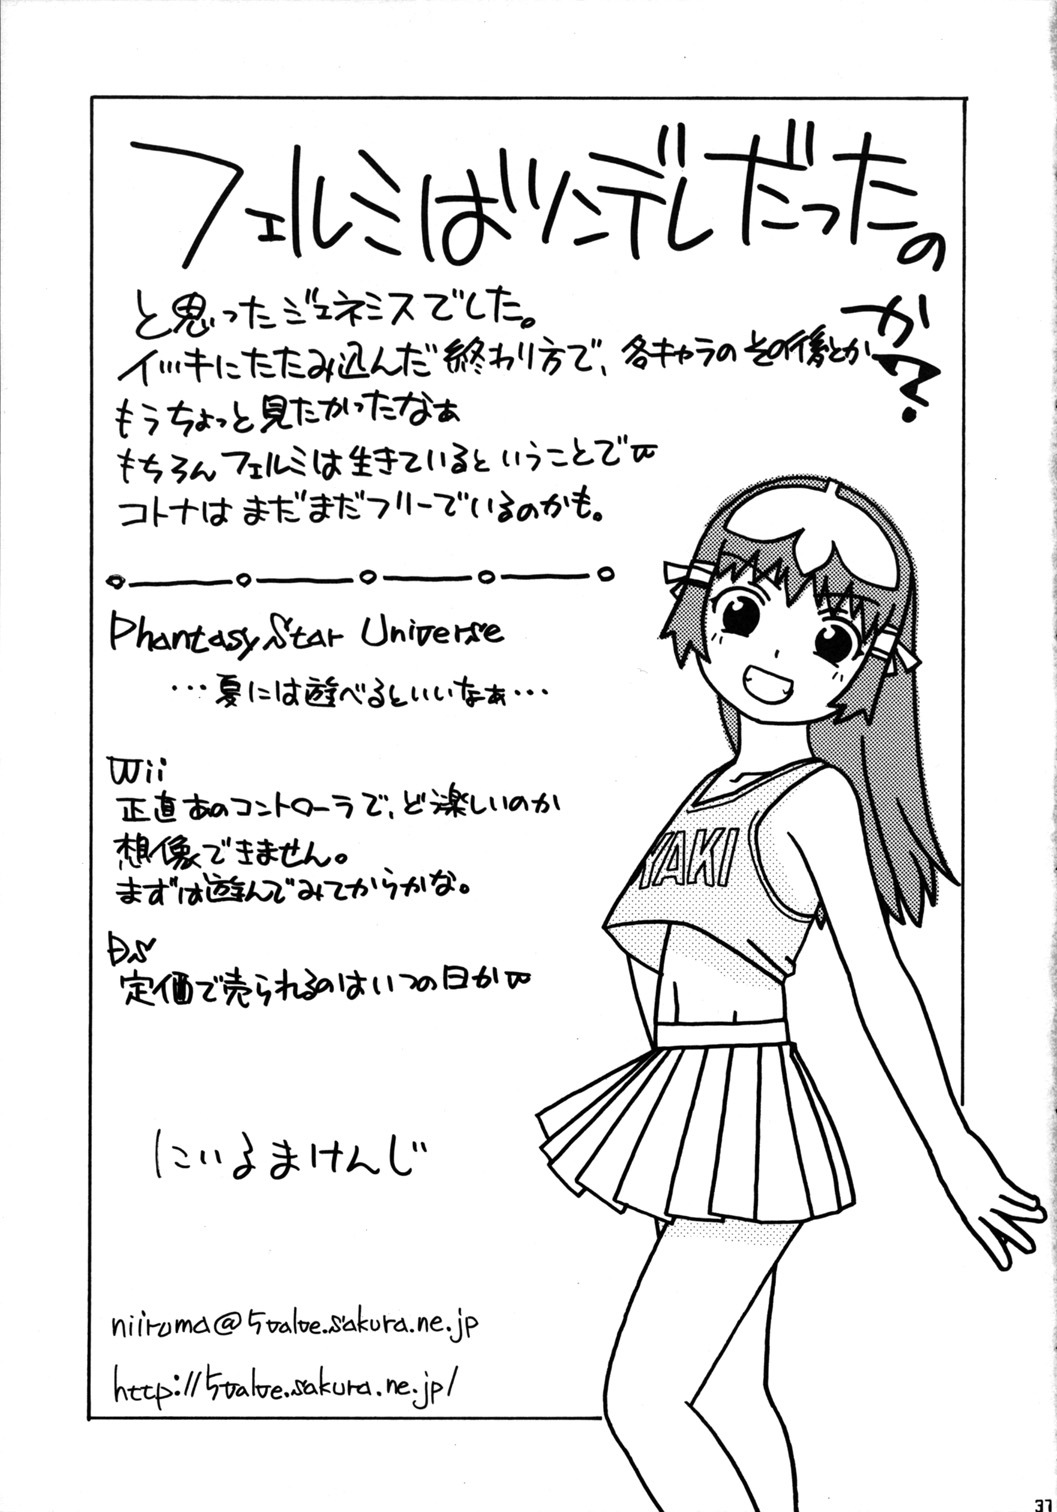 フェルミはツンデレだったの
か?
と思ったジェネミスでした。
イッキにたたみ込んだ終わり方で、各キャラのその後とか
もうちょっと見たかったなぁ
もちろんフェルミは生きているということでw
コトナはまだまだフリーでいるのかも。
Phantasy Star Universe
…夏には遊べるといいなぁ…
Wii
正直あのコントローラで、ど楽しいのか
想像できません。
まずは遊んでみてからかな。
DS
定価で売られるのはいつの日かw
YAKI
にいるまけんじ
niiruma@5valve.sakura.ne.jp
http://5valve.sakura.ne.jp/
37